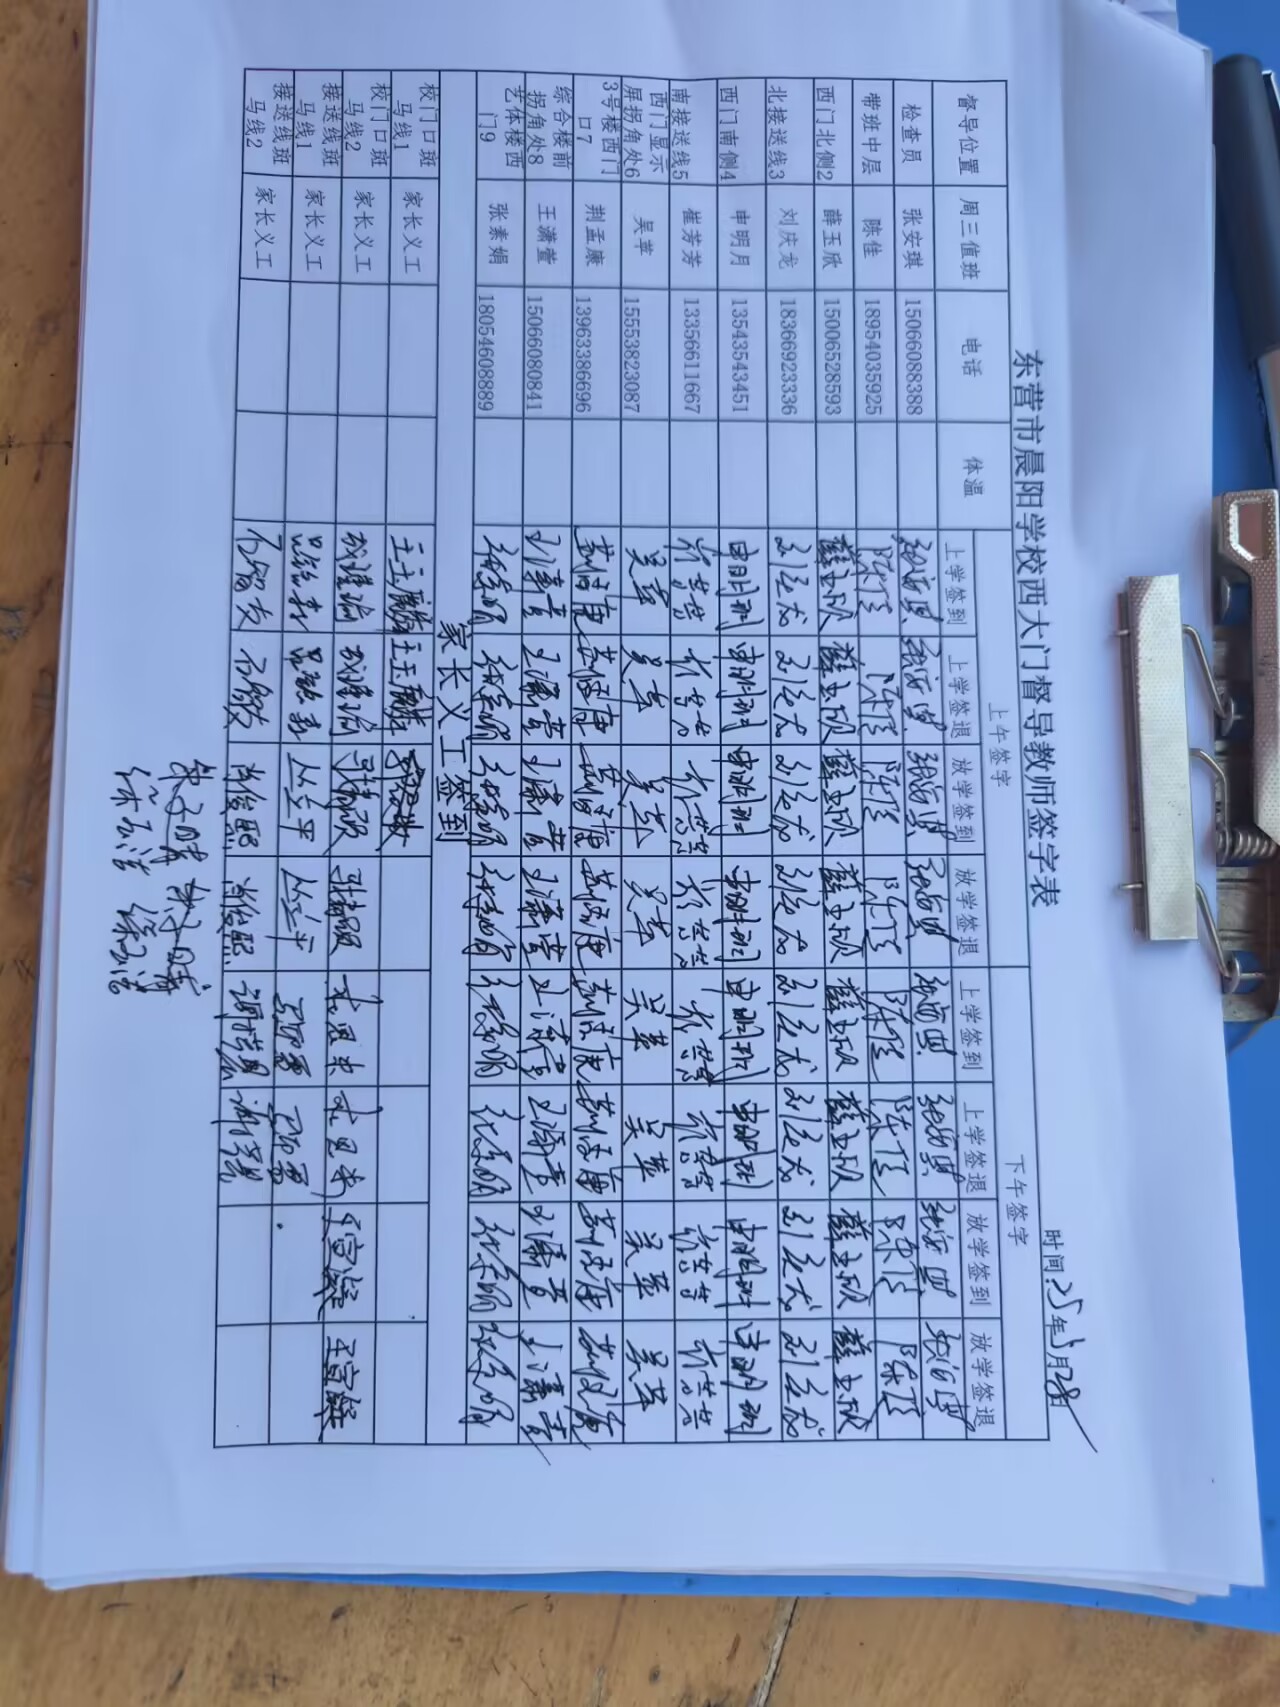 东营市晨阳学校西大门督导教师签字表
时间:25年5月28
督导位置 周三值班 电话 体温 上午签字 下午签字
上学签到 上学签退 放学签到 放学签退 上学签到 上学签退 放学签到 放学签退
检查员 张安琪 15066088388 张安琪 张安琪 张安琪 张安琪 张安琪 张安琪 张安琪 张安琪
带班中层 陈佳 18954035925 陈佳 陈佳 陈佳 陈佳 陈佳 陈佳 陈佳 陈佳
西门北侧2 薛玉欣 15006528593 薛玉欣 薛玉欣 薛玉欣 薛玉欣 薛玉欣 薛玉欣 薛玉欣 薛玉欣
北接送线3 刘庆龙 18366923336 刘庆龙 刘庆龙 刘庆龙 刘庆龙 刘庆龙 刘庆龙 刘庆龙 刘庆龙
西门南侧4 申明月 13543543451 申明月 申明月 申明月 申明月 申明月 申明月 申明月 申明月
南接送线5 崔芳芳 13356611667 崔芳芳 崔芳芳 崔芳芳 崔芳芳 崔芳芳 崔芳芳 崔芳芳 崔芳芳
西门显示
屏拐角处6 吴苹 15553823087 吴苹 吴苹 吴苹 吴苹 吴苹 吴苹 吴苹 吴苹
3号楼西门
口7 荆孟康 13963386696 荆孟康 荆孟康 荆孟康 荆孟康 荆孟康 荆孟康 荆孟康 荆孟康
综合楼前
拐角处8 王潇萱 15066080841 王潇萱 王潇萱 王潇萱 王潇萱 王潇萱 王潇萱 王潇萱 王潇萱
艺体楼西
门9 张素娟 18054608889 张素娟 张素娟 张素娟 张素娟 张素娟 张素娟 张素娟 张素娟
家长义工签到
校门口斑
马线1 家长义工 王玉麟 王玉麟
校门口斑
马线2 家长义工 王宫凝 王宫凝
接送线斑
马线1 家长义工 丛立平 丛立平
接送线斑
马线2 家长义工 尚俊熙 尚俊熙